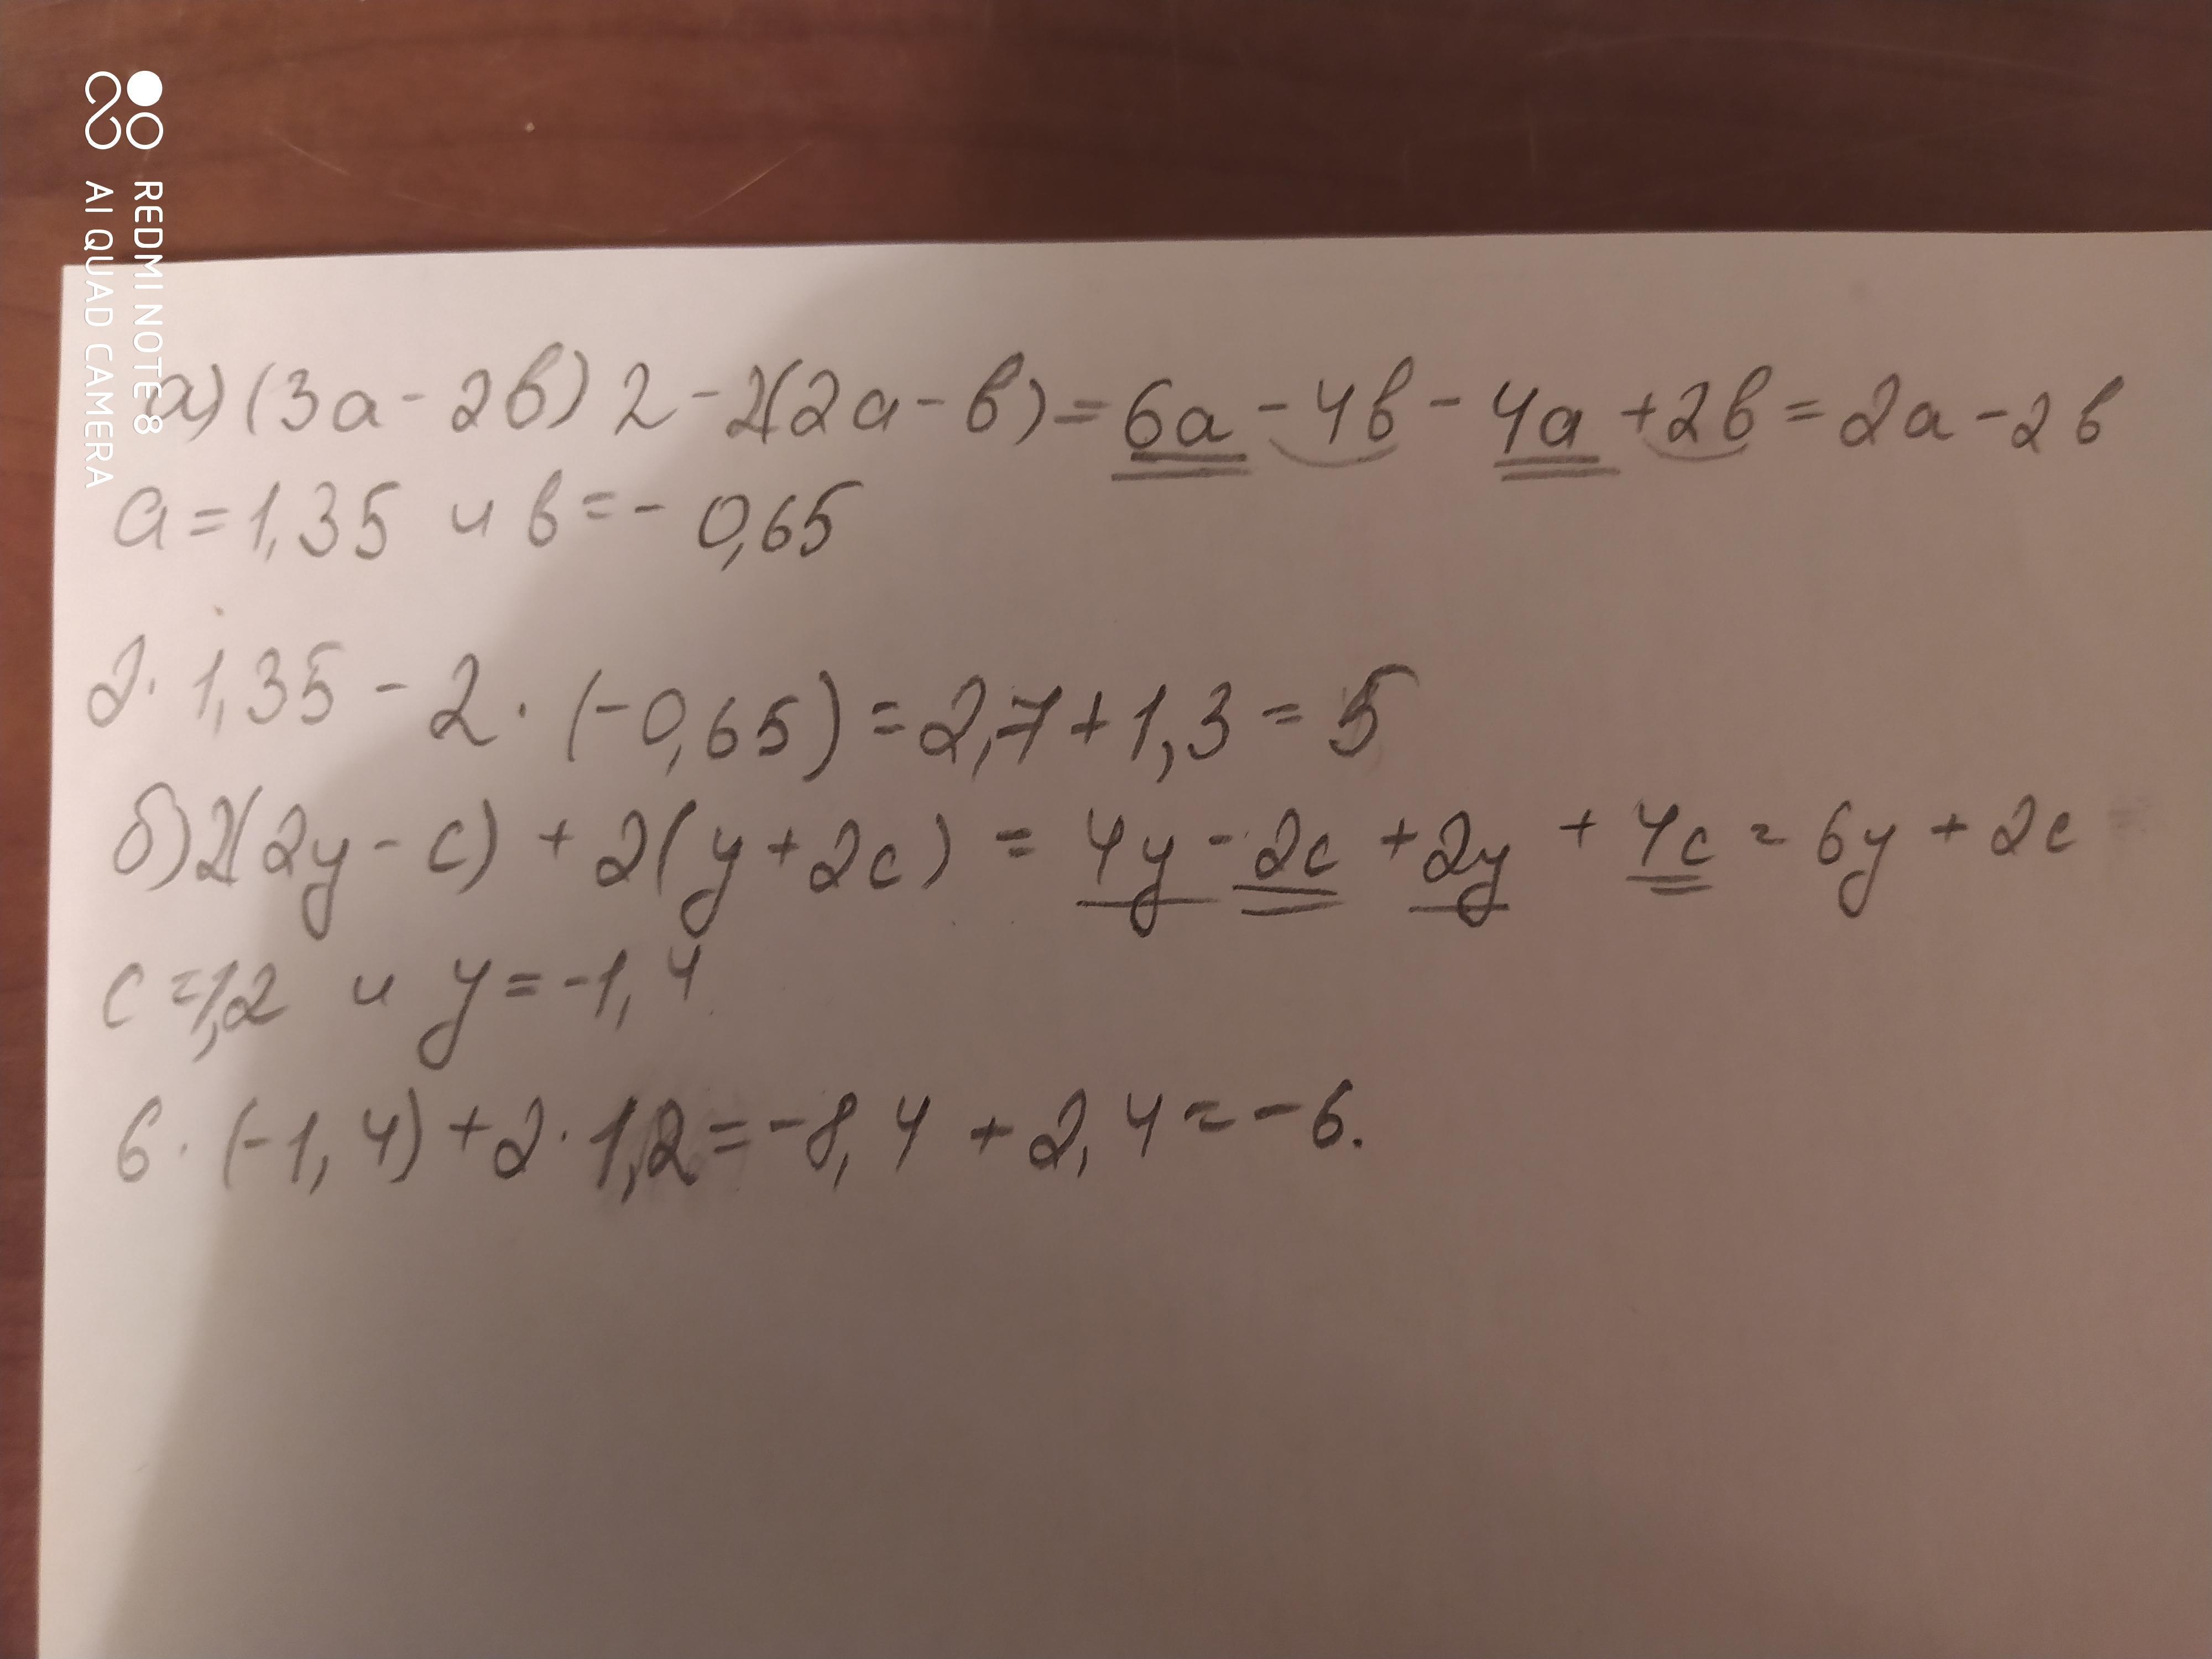 REDMI NOTE 8
AI QUAD CAMERA
а) (3а - 2в) 2 - 2(2а - в) = 6а - 4в - 4а + 2в = 2а - 2в
а = 1,35 и в = - 0,65
2 · 1,35 - 2 · (-0,65) = 2,7 + 1,3 = 5
б) 2(2у - с) + 2(у + 2с) = 4у - 2с + 2у + 4с = 6у + 2с
с = 1,2 и у = -1,4
6 · (-1,4) + 2 · 1,2 = -8,4 + 2,4 = -6.